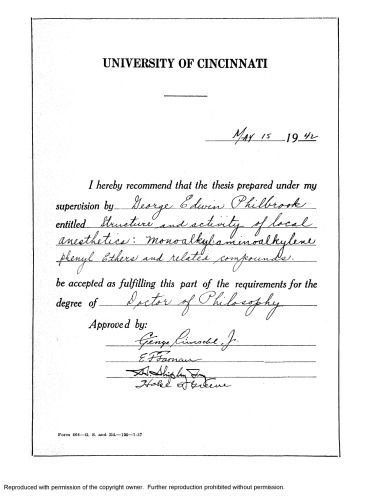 UNIVERSITY OF CINCINNATI
May 15 1942
I hereby recommend that the thesis prepared under my
supervision by George Edwin Philbrook
entitled Structure and activity of local
anesthetics: monoalkylaminoalkylene
phenyl Ethers and related compounds.
be accepted as fulfilling this part of the requirements for the
degree of Doctor of Philosophy
Approved by:
George Jr.
E F Farnau
Hoke S. Greene
Form 668—G. S. and Ed.—100—7-37
Reproduced with permission of the copyright owner. Further reproduction prohibited without permission.